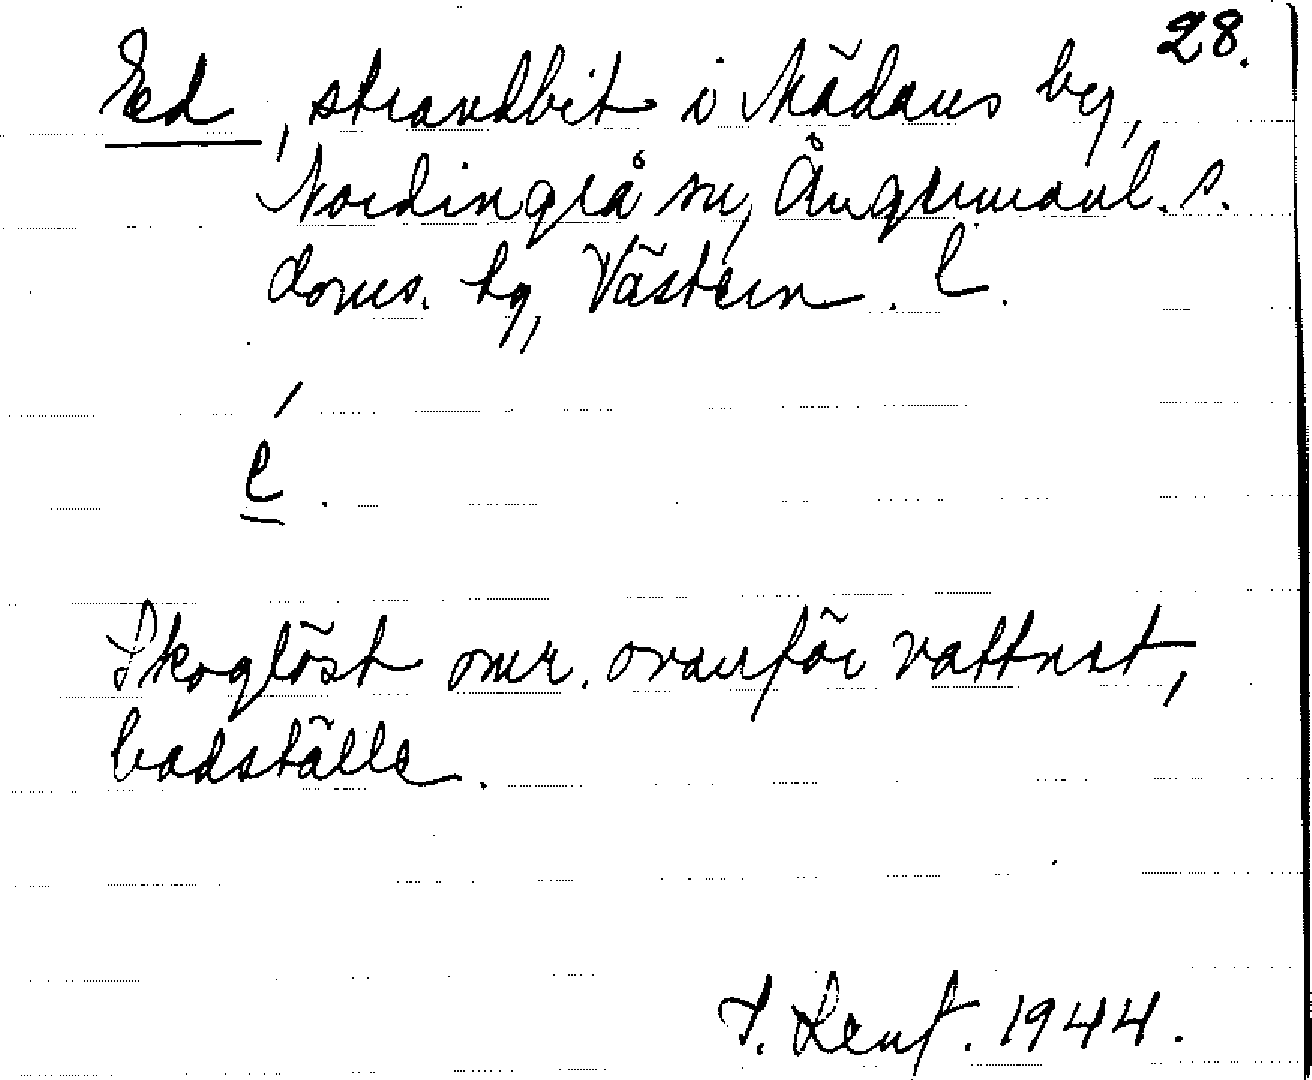 28.
Ed, strandbit i Mädans by,
Nordingrå sn, Ångermanl. s.
doms. hg, Västern. l.
é.
Skoglöst omr. ovanför vattnet,
badställe.
1944.